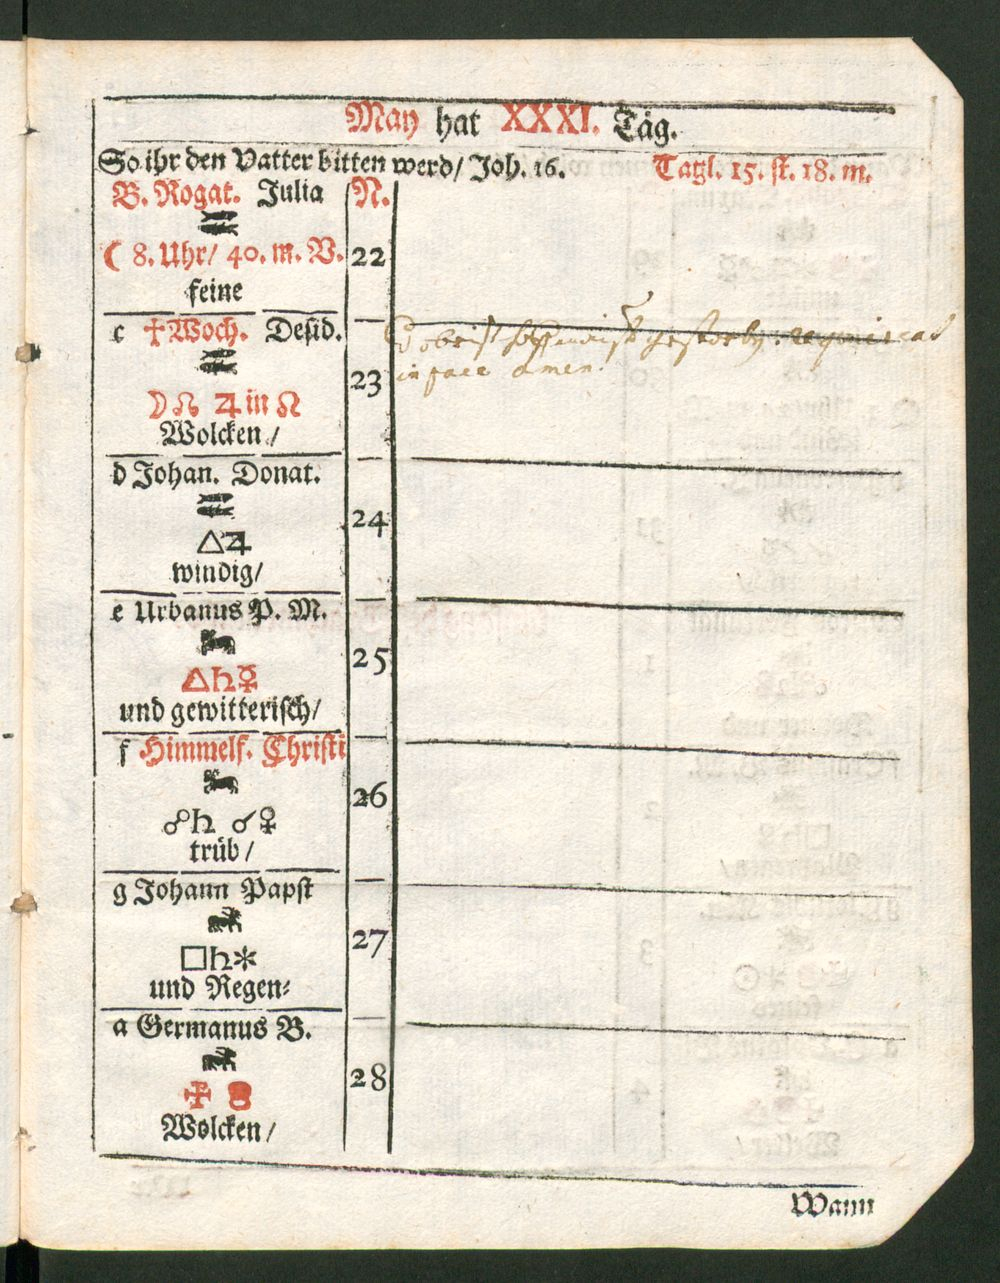 May hat XXXI. Täg.
So ihr den Vatter bitten werd/ Joh. 16. Tagl. 15. st. 18. m.
B. Rogat. Julia N.
☾ 8. Uhr/ 40. m. V. 22
feine
c ☩ Woch. Desid.
gestorben. requiescat
in pace amen.
23
☽☊ ♃ in ♌
Wolcken/
d Johan. Donat.
24
△♃
windig/
e Urbanus P. M.
25
△♄☿
und gewitterisch/
f Himmelf. Christi
26
☍♄ ☌♀
trüb/
g Johann Papst
27
□♄✱
und Regen-
a Germanus B.
28
Wolcken/
Wann